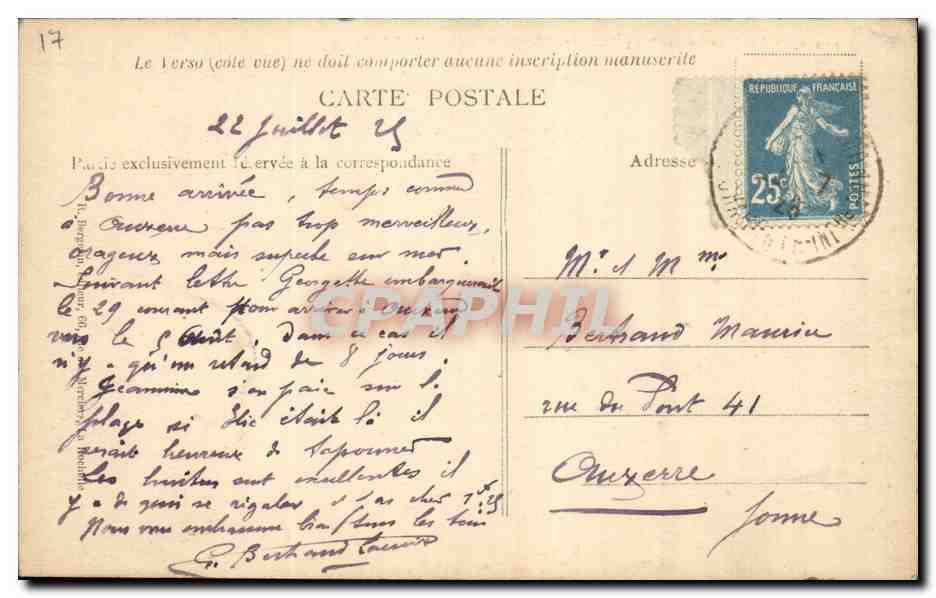 17
Le Verso (côté vue) ne doit comporter aucune inscription manuscrite
CARTE POSTALE
22 Juillet 25
Partie exclusivement réservée à la correspondance
Adresse
REPUBLIQUE FRANÇAISE
25c
POSTES
Bonne arrivée, temps comme
à Auxerre pas trop merveilleux,
orageux mais superbe sur mer.
Suivant lettre Georgette embarquerait
le 29 courant pour arriver à Auxerre
vers le 5 Août, dans ce cas il
n'y a qu'un retard de 8 jours.
Jeannine s'en paie sur la
plage si Elie était là il
serait heureux de
Les huitres sont excellentes il
y a de quoi se régaler
Nous vous embrassons bien tous les tous
G. Bertrand
CPAPHIL
Mr et Mme
Bertrand Maurice
rue du Pont 41
Auxerre
Yonne
La Rochelle